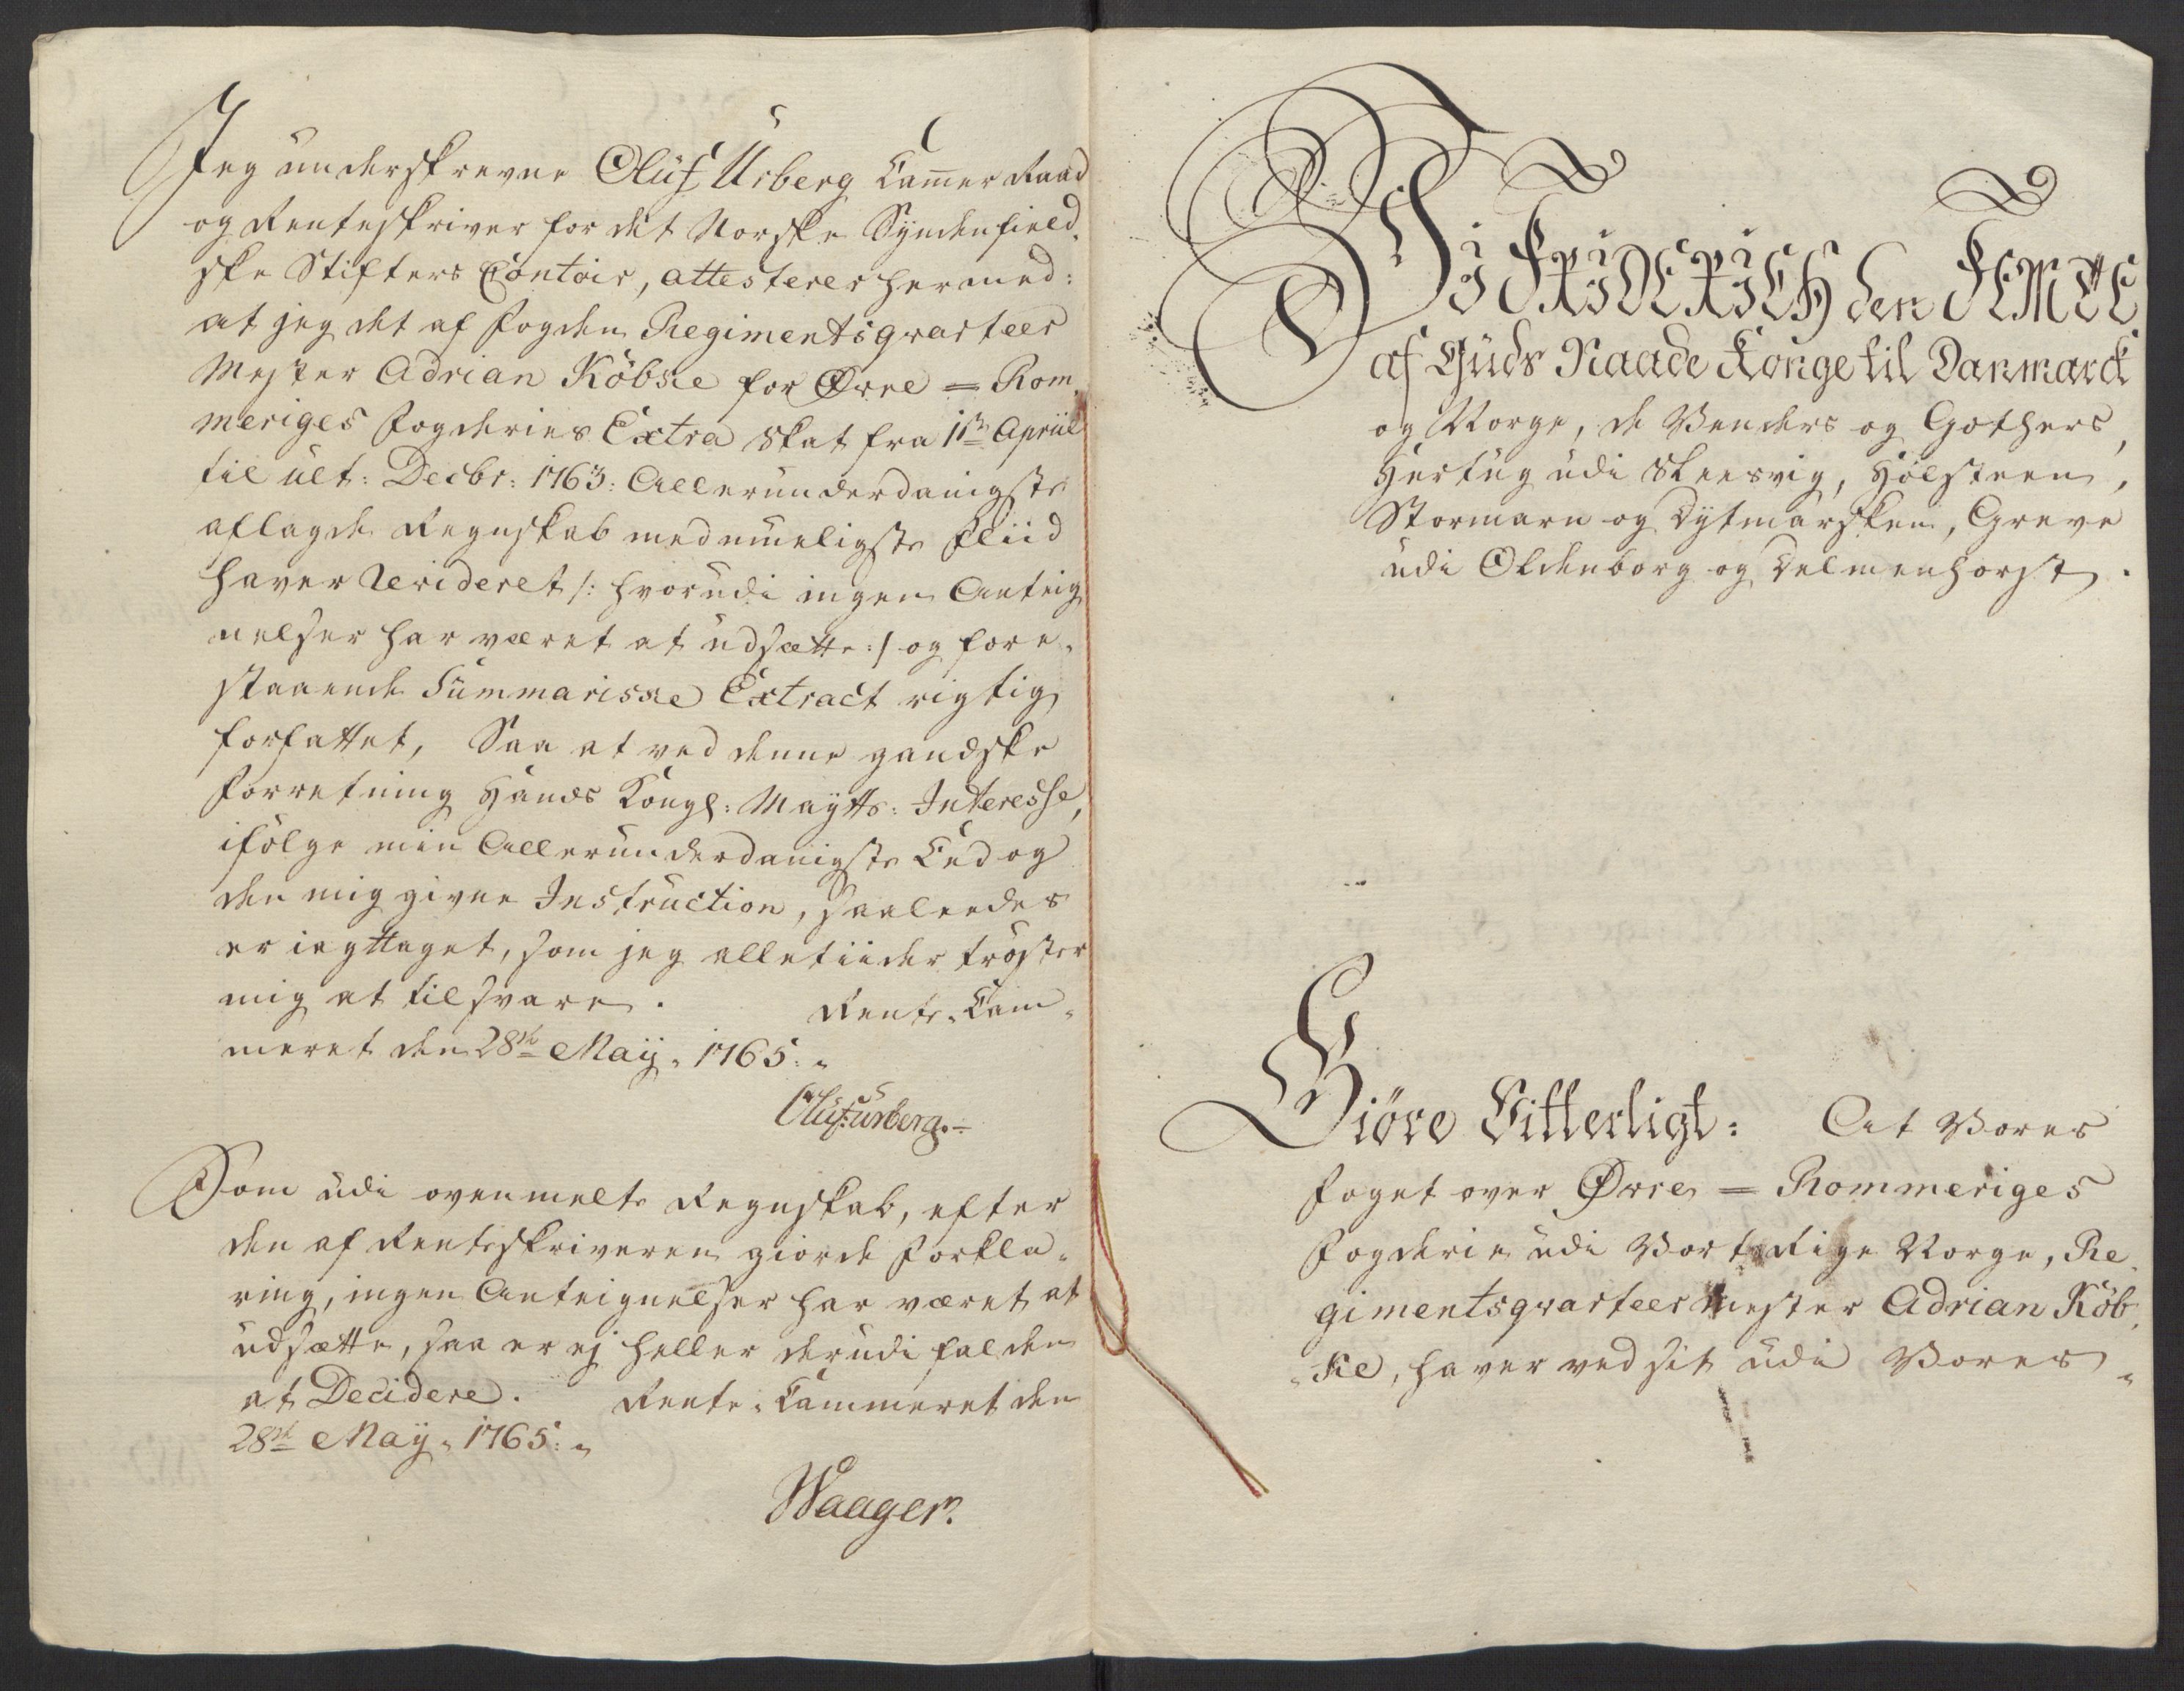 Jeg underskrevne Oluf Urberg Cammer Raad
og Renteskriver for det Norske Syndenfield-
ske Stifters Contoir, attesterer hermed:
at jeg det af Fogden Regimentsqvarteer
Mester Adrian Köbke for Øvre = Rom-
meriges Fogderies Extra Skat fra 1ste Apriil
til ult: Decbr: 1763: Allerunderdanigste
aflagde Regnskab med mueligste Fliid
haver Revideret /: hvorudi ingen Anteig
nelser har været at udsætte :/ og fore-
staaende Summariske Extract rigtig
forfattet, Saa at ved denne gandske
Forretning Hands Kongl: Maytts: Interesse,
ifölge min Allerunderdanigste Eed og
den mig givne Instruction, saaleedes
er iagttaget, som jeg alletiider tröster
mig at tilsvare. Rente-Cam-
meret den 28de Maij 1765.
Oluf Urberg.
Som udi ovenmelte Regnskab, efter
den af Renteskriveren giorde Forkla-
ring, ingen Anteignelser har været at
udsætte, saa er ej heller derudi falden
at Decidere. Rente-Cammeret den
28de Maij 1765.
Waager.
Vi FRIDERICH den FEMTE
af Guds Naade Konge til Danmarck
og Norge, de Venders og Gothers,
Hertug udi Sleesvig, Holsteen,
Stormarn og Dytmarsken, Greve
udi Oldenborg og Delmenhorst.
Giöre Vitterligt: At Vores
Foget over Øvre = Rommeriges
Fogderie udi Vort Rige Norge, Re-
gimentsqvarteer Mester Adrian Köb-
ke, haver ved sit udi Vores